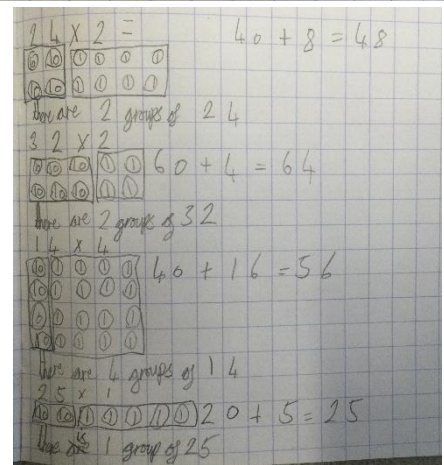 24 x 2 = 40 + 8 = 48
10 10 1 1 1 1
10 10 1 1 1 1
there are 2 groups of 24
32 x 2
10 10 10 1 1 60 + 4 = 64
10 10 10 1 1
there are 2 groups of 32
14 x 4
10 1 1 1 1 40 + 16 = 56
10 1 1 1 1
10 1 1 1 1
10 1 1 1 1
there are 4 groups of 14
25 x 1
10 10 1 1 1 1 1 20 + 5 = 25
there is 1 group of 25